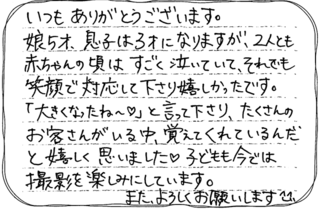 いつもありがとうございます。
娘5才、息子は3才になりますが、2人とも
赤ちゃんの頃はすごく泣いていて、それでも
笑顔で対応して下さり嬉しかったです。
「大きくなったね〜♡」と言って下さり、たくさんの
お客さんがいる中、覚えてくれているんだ
と嬉しく思いました♡子どもも今では
撮影を楽しみにしています。
また、よろしくお願いします